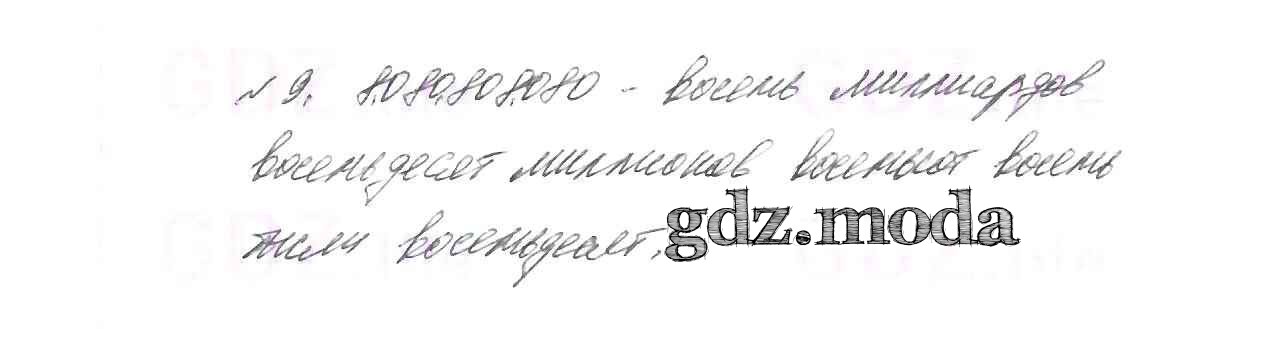 № 9. 8.080.808.080 - восемь миллиардов
восемьдесят миллионов восемьсот восемь
тысяч восемьдесят.
gdz.moda